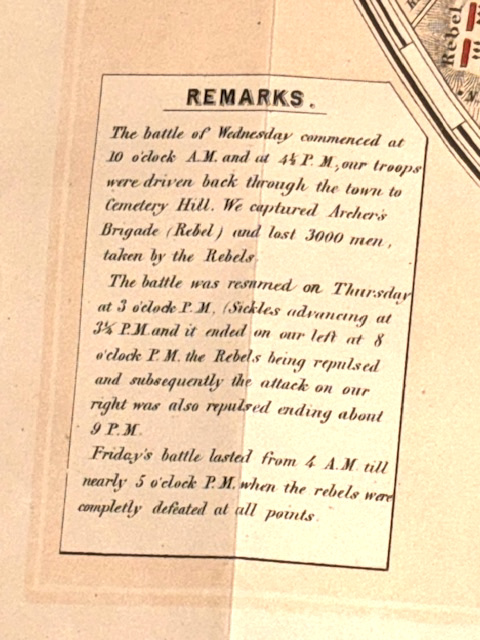 Rebel
REMARKS.
The battle of Wednesday commenced at
10 o'clock A.M. and at 4½ P.M., our troops
were driven back through the town to
Cemetery Hill. We captured Archer's
Brigade (Rebel) and lost 3000 men,
taken by the Rebels.
The battle was resumed on Thursday
at 3 o'clock P.M, (Sickles advancing at
P.M. and it ended on our left at 8
o'clock P.M. the Rebels being repulsed
and subsequently the attack on our
right was also repulsed ending about
9 P.M.
Friday's battle lasted from 4 A.M. till
nearly 5 o'clock P.M. when the rebels were
completly defeated at all points.